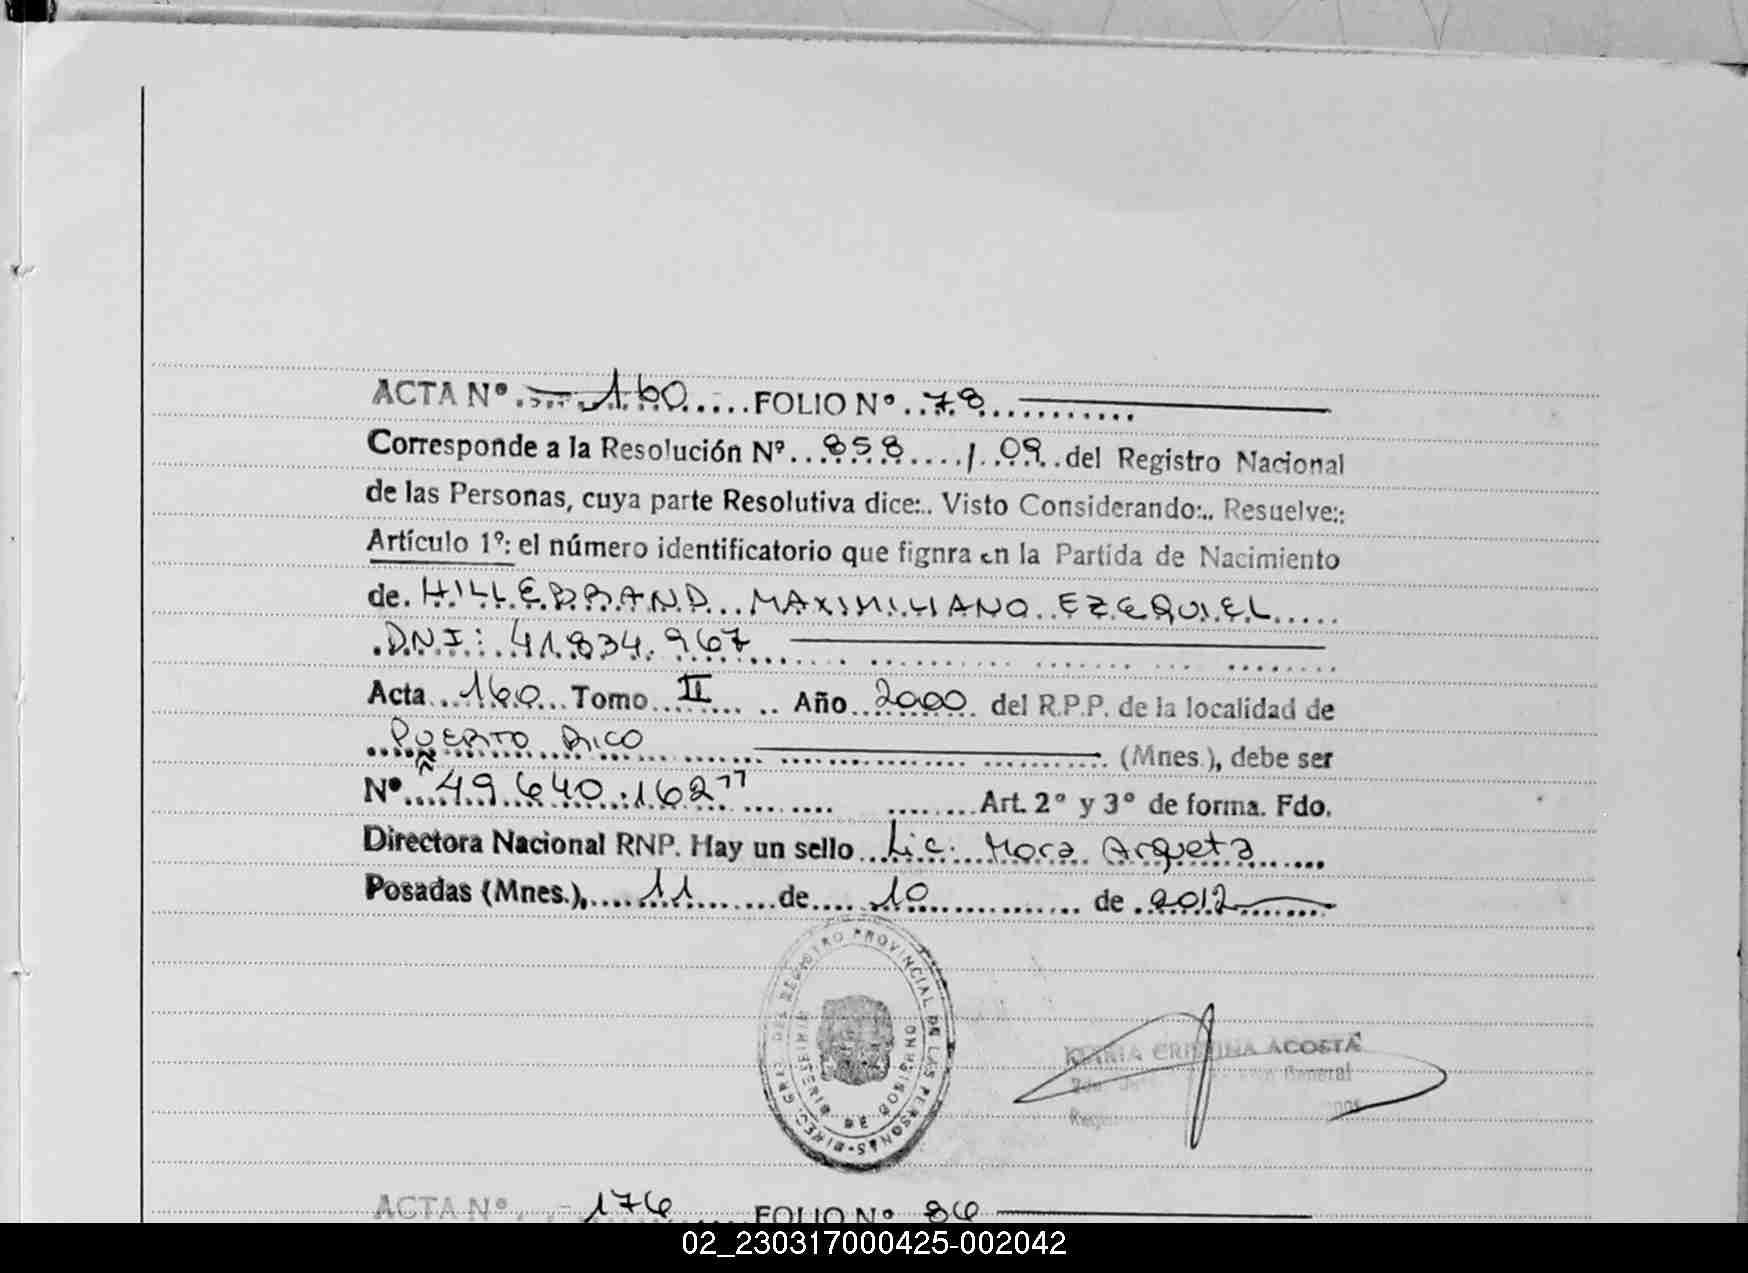 ACTA Nº 160 FOLIO Nº 78
Corresponde a la Resolución Nº 858 / 09 del Registro Nacional
de las Personas, cuya parte Resolutiva dice:.. Visto Considerando:.. Resuelve::
Artículo 1º: el número identificatorio que fignra en la Partida de Nacimiento
de. HILLEBRAND MAXIMILIANO EZEQUIEL
DNI: 41.834.967
Acta 160 Tomo II Año 2000 del R.P.P. de la localidad de
PUERTO RICO (Mnes.), debe ser
Nº "49.640.162" Art. 2º y 3º de forma. Fdo.
Directora Nacional RNP. Hay un sello Lic. Mora Arqueta
Posadas (Mnes.), 11 de 10 de 2012
DIREC. GRAL. DEL REGISTRO PROVINCIAL DE LAS PERSONAS
MINISTERIO DE GOBIERNO
MARIA CRISTINA ACOSTA
General
ACTA Nº 176 FOLIO Nº 86
02_230317000425-002042